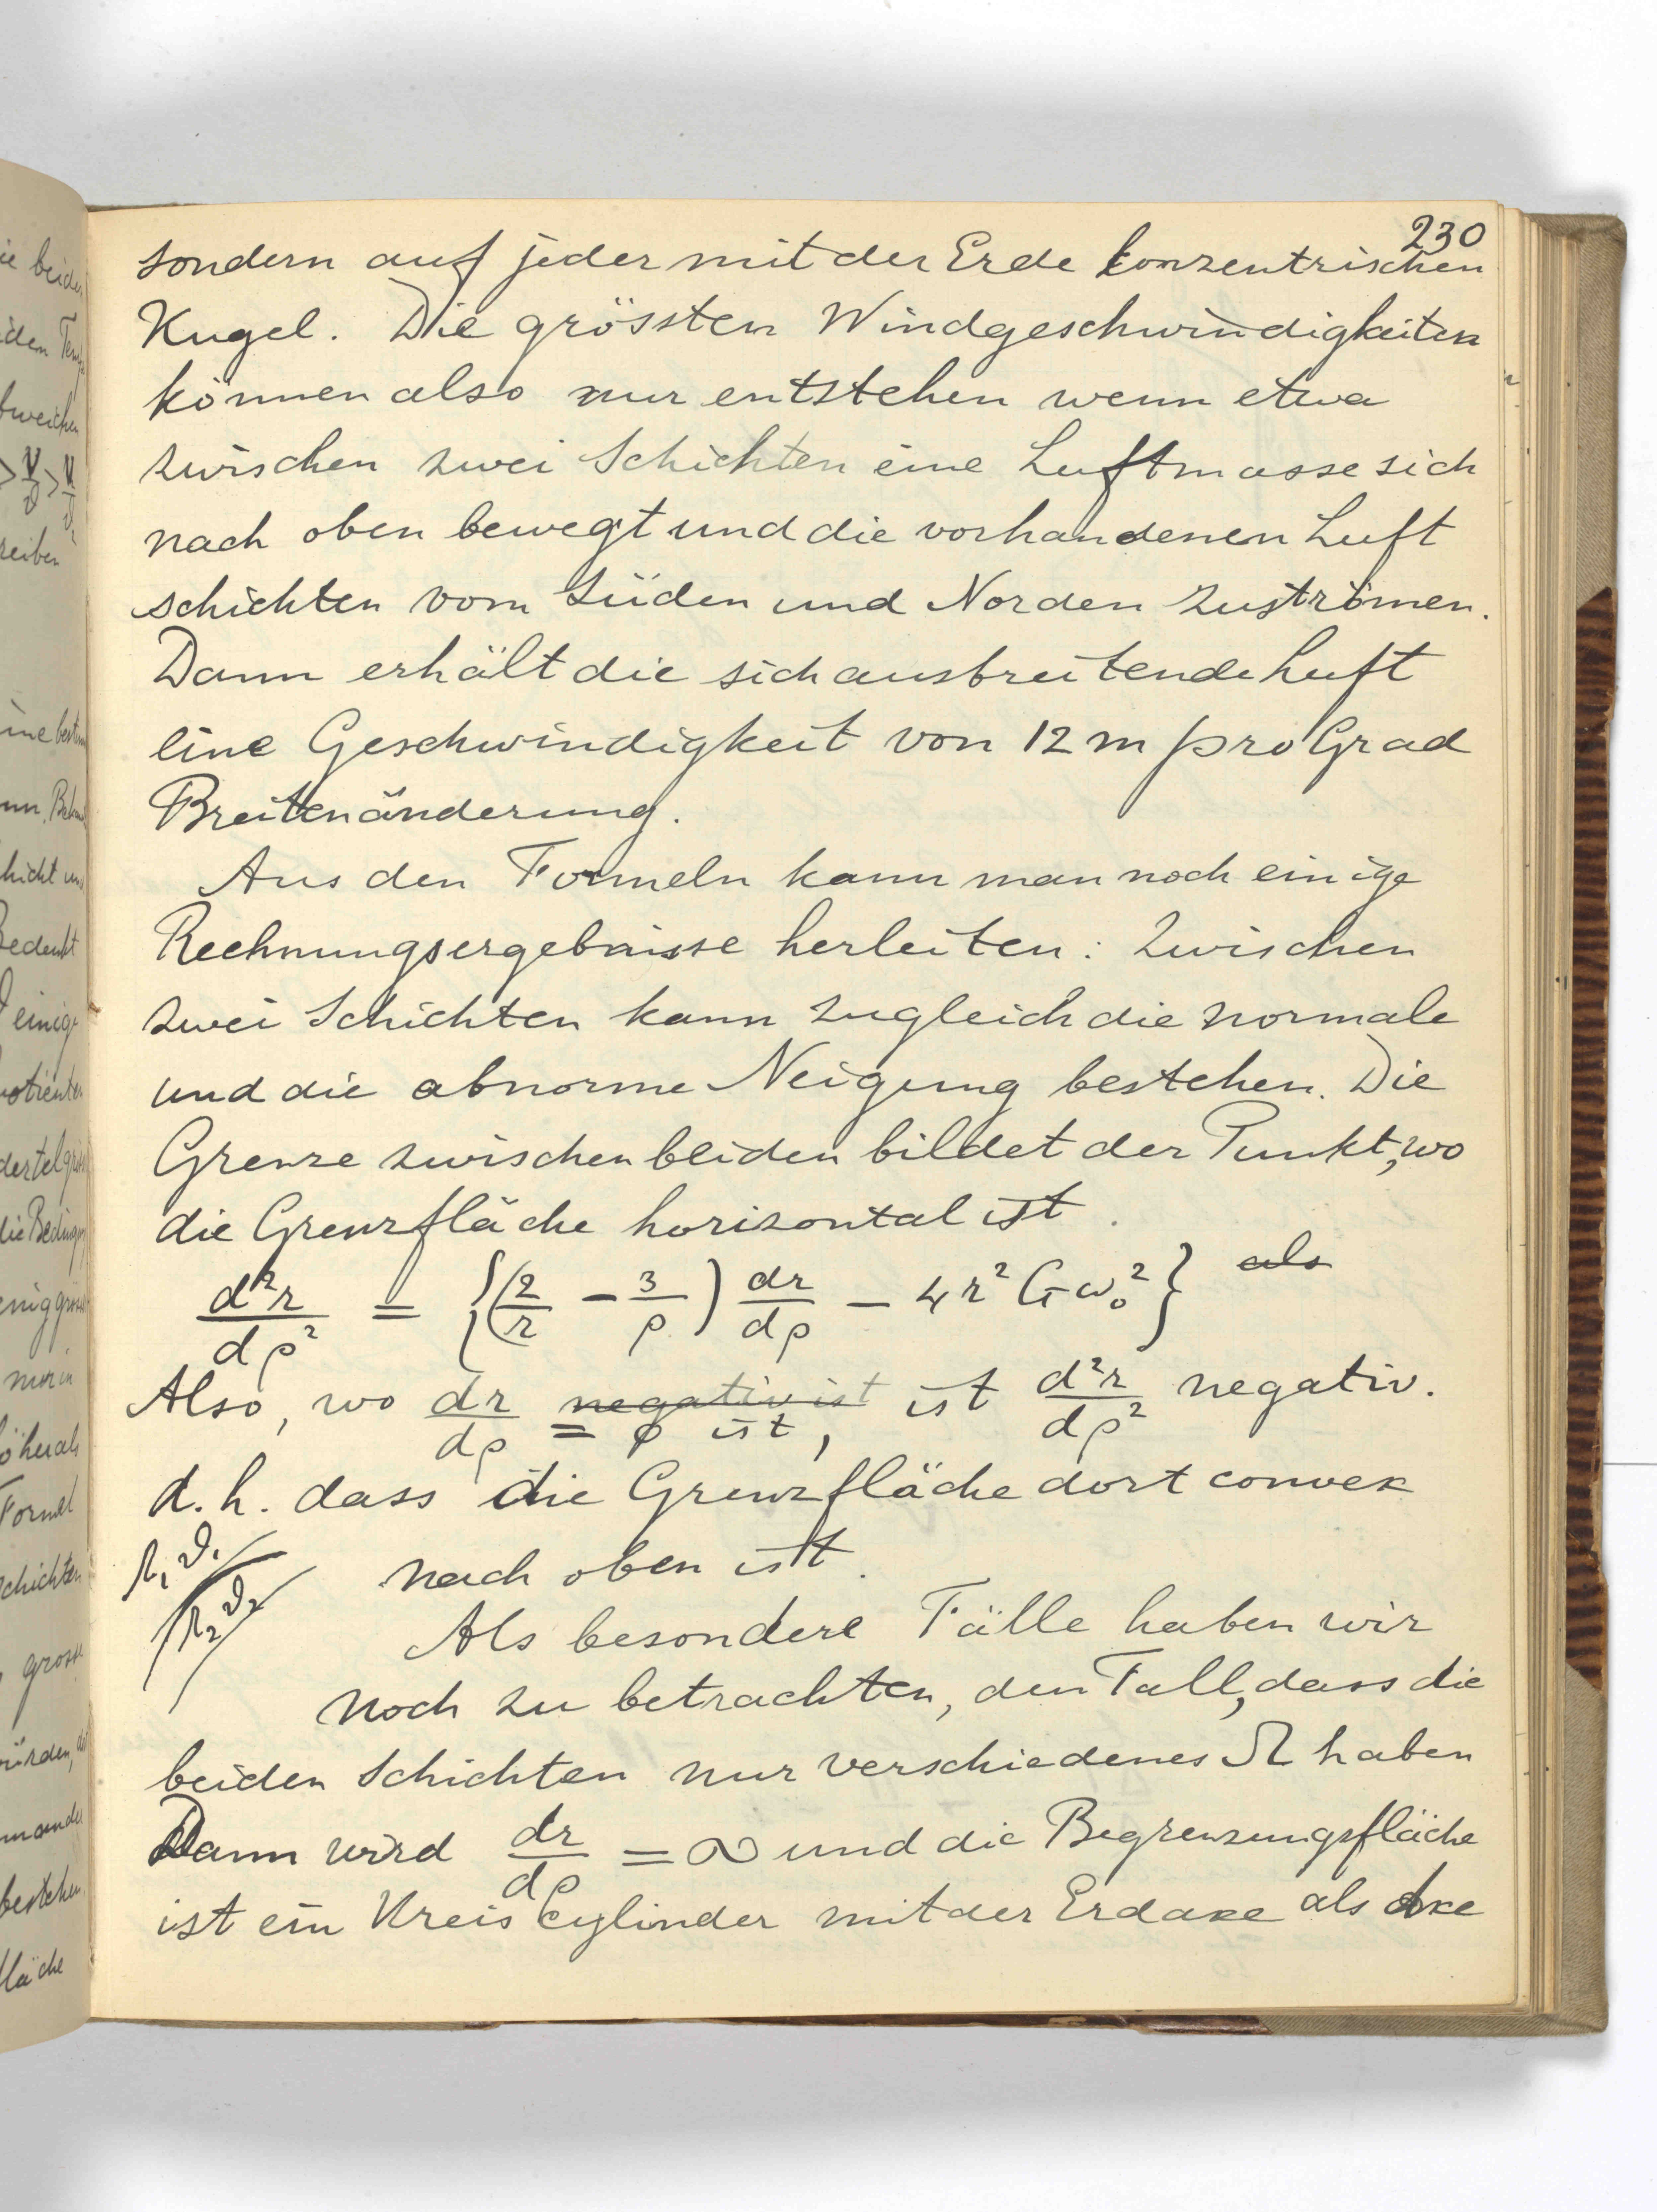 230
sondern auf jeder mit der Erde konzentrischen
Kugel. Die grössten Windgeschwindigkeiten
können also nur entstehen wenn etwa
zwischen zwei Schichten eine Luftmasse sich
nach oben bewegt und die vorhandenen Luft
schichten vom Süden und Norden zuströmen.
Dann erhält die sich ausbreitende Luft
eine Geschwindigkeit von 12 m pro Grad
Breitenänderung.
Aus den Formeln kann man noch einige
Rechnungsergebnisse herleiten: Zwischen
zwei Schichten kann zugleich die normale
und die abnorme Neigung bestehen. Die
Grenze zwischen beiden bildet der Punkt, wo
die Grenzfläche horizontal ist.
d²r/dρ² = {(2/r − 3/ρ) dr/dρ − 4r² G ω₀²} als
Also, wo dr/dρ negativ ist = 0 ist, ist d²r/dρ² negativ.
d.h. dass die Grenzfläche dort convex
nach oben ist.
Ω₁ ϑ₁
Ω₂ ϑ₂
Als besondere Fälle haben wir
noch zu betrachten, den Fall, dass die
beiden Schichten nur verschiedenes Ω haben
Dann wird dr/dρ = ∞ und die Begrenzungsfläche
ist ein Kreiscylinder mit der Erdaxe als Axe